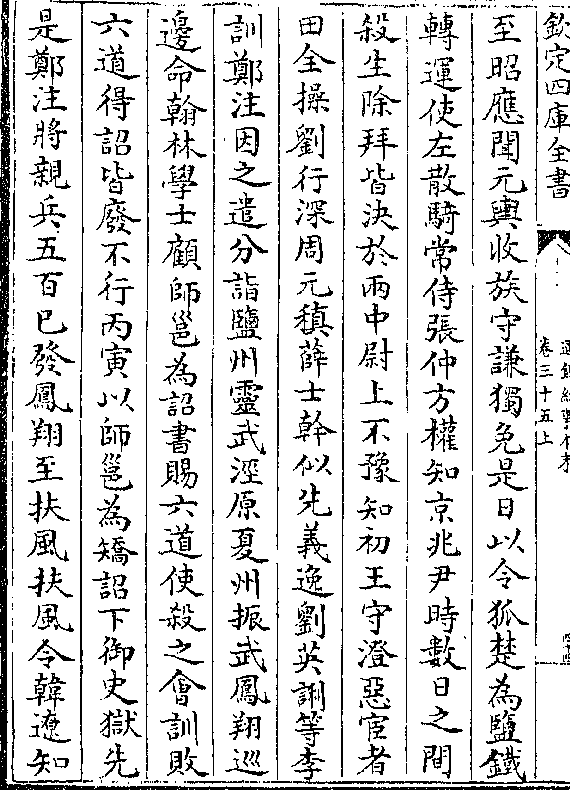 欽定四庫全書
卷三十五上
至昭應聞元輿收族守謙獨免是日以令狐楚為鹽鐵
轉運使左散騎常侍張仲方權知京兆尹時數日之間
殺生除拜皆決於兩中尉上不豫知初王守澄惡宦者
田全操劉行深周元稹薛士幹似先義逸劉英誗等李
訓鄭注因之遣分詣鹽州靈武涇原夏州振武鳳翔巡
邊命翰林學士顧師邕為詔書賜六道使殺之會訓敗
六道得詔皆廢不行丙寅以師邕為矯詔下御史獄先
是鄭注將親兵五百已發鳳翔至扶風扶風令韓遼知